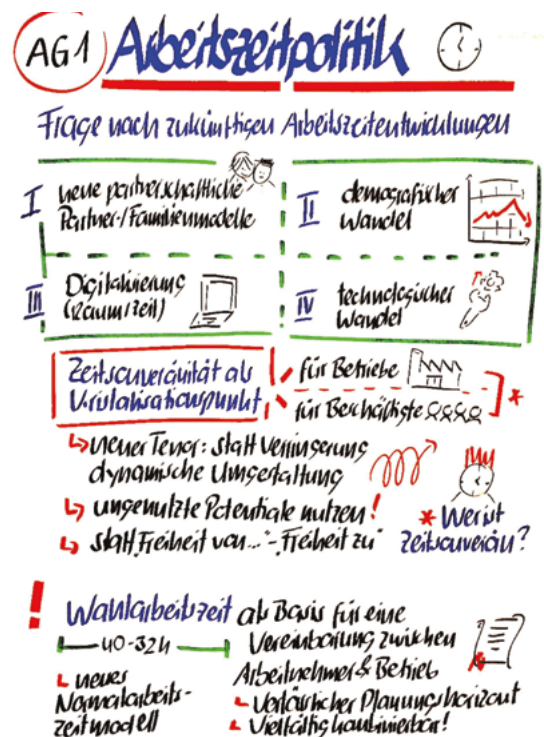 AG1 Arbeitszeitpolitik
Frage nach zukünftigen Arbeitszeitentwicklungen
I neue partnerschaftliche
Partner-/Familienmodelle
II demografischer
Wandel
III Digitalisierung
(Raum/Zeit)
IV technologischer
Wandel
Zeitsouveränität als
Kristallisationspunkt
für Betriebe
für Beschäftigte
*
neuer Tenor: statt Verringerung
dynamische Umgestaltung
ungenutzte Potentiale nutzen!
statt „Freiheit von..." - „Freiheit zu"
* Wer ist
zeitsouverän?
! Wahlarbeitszeit als Basis für eine
Vereinbarung zwischen
Arbeitnehmer & Betrieb
40-32h
neues
Normalarbeits-
zeitmodell
Verlässlicher Planungshorizont
Vielfältig kombinierbar!